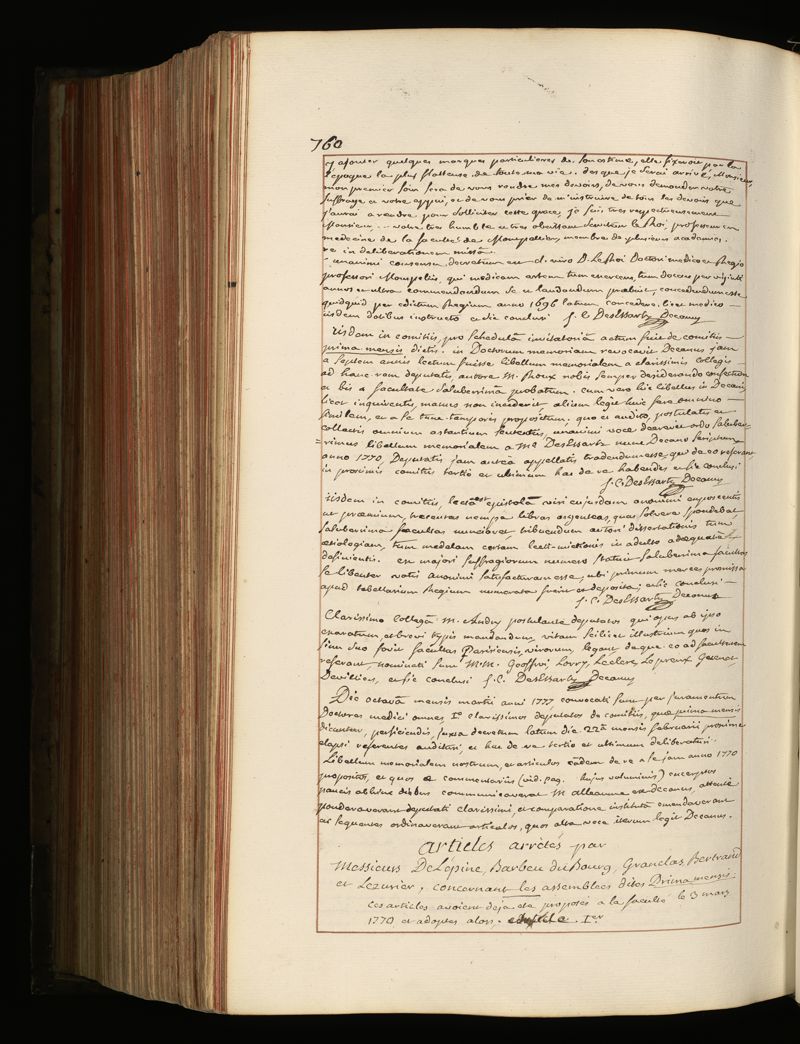 760
y ajouter quelques marques particulieres de son estime, elle fixeroit par la
l'epoque la plus flatteuse de toute ma vie. des que je serai arrivé, Monsieur,
mon premier soin sera de vous rendre mes devoirs, de vous demander votre
suffrage et votre appui, et de vous prier de m'instruire de tous les devoirs que
j'aurai a rendre pour solliciter cette grace, je suis tres respectueusement
Monsieur, .. votre tres humble et tres obeissant serviteur le Roi, professeur en
medecine de la faculté de Montpellier, membre de plusieurs academies.
re in deliberationem missâ.
unanimi consensu, decretum est cl. viro D. Le Roi Doctori medico et Regio
professori Monspeliis, qui medicam artem tum exercens, tum docens per viginti
annos et ultra commendandum se et laudandum præbuit, concedendum esse
quidquid per edictum Regium anno 1696 latum concedere licet medico
iisdem dotibus instructo et sic conclusi J. C. DesEssartz Decanus
iisdem in comitiis, pro schedulâ invitatoriâ actum fuit de comitiis
prima mensis dictis. in Doctorum memoriam revocavit Decanus jam
a septem annis lectum fuisse libellum memorialem a clarissimis collegis
ad hanc rem deputatis, autore M. Roux nobis semper desiderando confectum
et bis a facultate saluberrimâ probatum. cum vero hic libellus in Decani,
licet inquirentis, manus non inciderit alium legit huic fere omnino
similem, et a se tunc temporis propositum. quo et audito, postulatis et
collectis omnium astantium sententiis, unanimi voce decrevit ordo saluber-
=rimus libellum memorialem a Mo DesEssartz nunc Decano scriptum
anno 1770, Deputatis jam anteà appellatis tradendum esse, qui de eo referant
in proximis comitiis tertio et ultimum hac de re habendis et sic conclusi
J. C. DesEssartz Decanus
iisdem in comitiis, lecta est epistola viri cujusdam anonimi exposcentis
ut præmium, trecentas nempe libras argenteas, quas solvere spondebat,
saluberrima facultas nunciaret, tribuendum autori dissertationis tum
ætiologiam, tum medelam certam lecti-mictionis in adulto adæquatè
definientis. ex majori suffragiorum numero statuit saluberrima facultas
se libenter votis anonimi satisfacturam esse, ubi primum merces promissa
apud tabellarium Regium numerata fuerit et deposita; et sic conclusi
J. C. DesEssartz Decanus
Clarissimo collegâ M. Andry postulante deputatos qui opus ab ipso
exaratum, et brevi typis mandandum, vitam scilicet illustrium quos in
sinu suo fovit facultas Parisiensis, virorum, legant deque eo ad facultatem
referant, nominati sunt M.M. Geoffroi, Lorry, Leclerc, Lepreux, Guenet,
Devilliers, et sic conclusi J. C. DesEssartz Decanus
Die octavâ mensis martii anni 1777, convocati sunt per juramentum
Doctores medici omnes 1o clarissimos deputatos de comitiis, quæ prima mensis
dicuntur, perficiendis, juxta decretum latum die 22â mensis februarii proximè
elapsi referentes audituri, et hac de re tertio et ultimum deliberaturi.
Libellum memorialem nostrum, et articulos eadem de re a se jam anno 1770
propositos, et quos e commentariis (vid. pag. hujus voluminis) excerptos
paucis abhinc diebus communicaverat M alleaume ex decanus, attentè
ponderaverant deputati clarissimi, et comparatione institutâ emendaverant
ac sequentes ordinaverant articulos, quos alta voce iterum legit Decanus.
articles arrêtés par
Messieurs DeLépine, Barbeu du Bourg, Granclas, Bertrand
et Lezurier, concernant les assemblées dites Prima mensis.
ces articles avoient déja été proposés a la faculté le 3 mars
1770 et adoptés alors. article. Ier